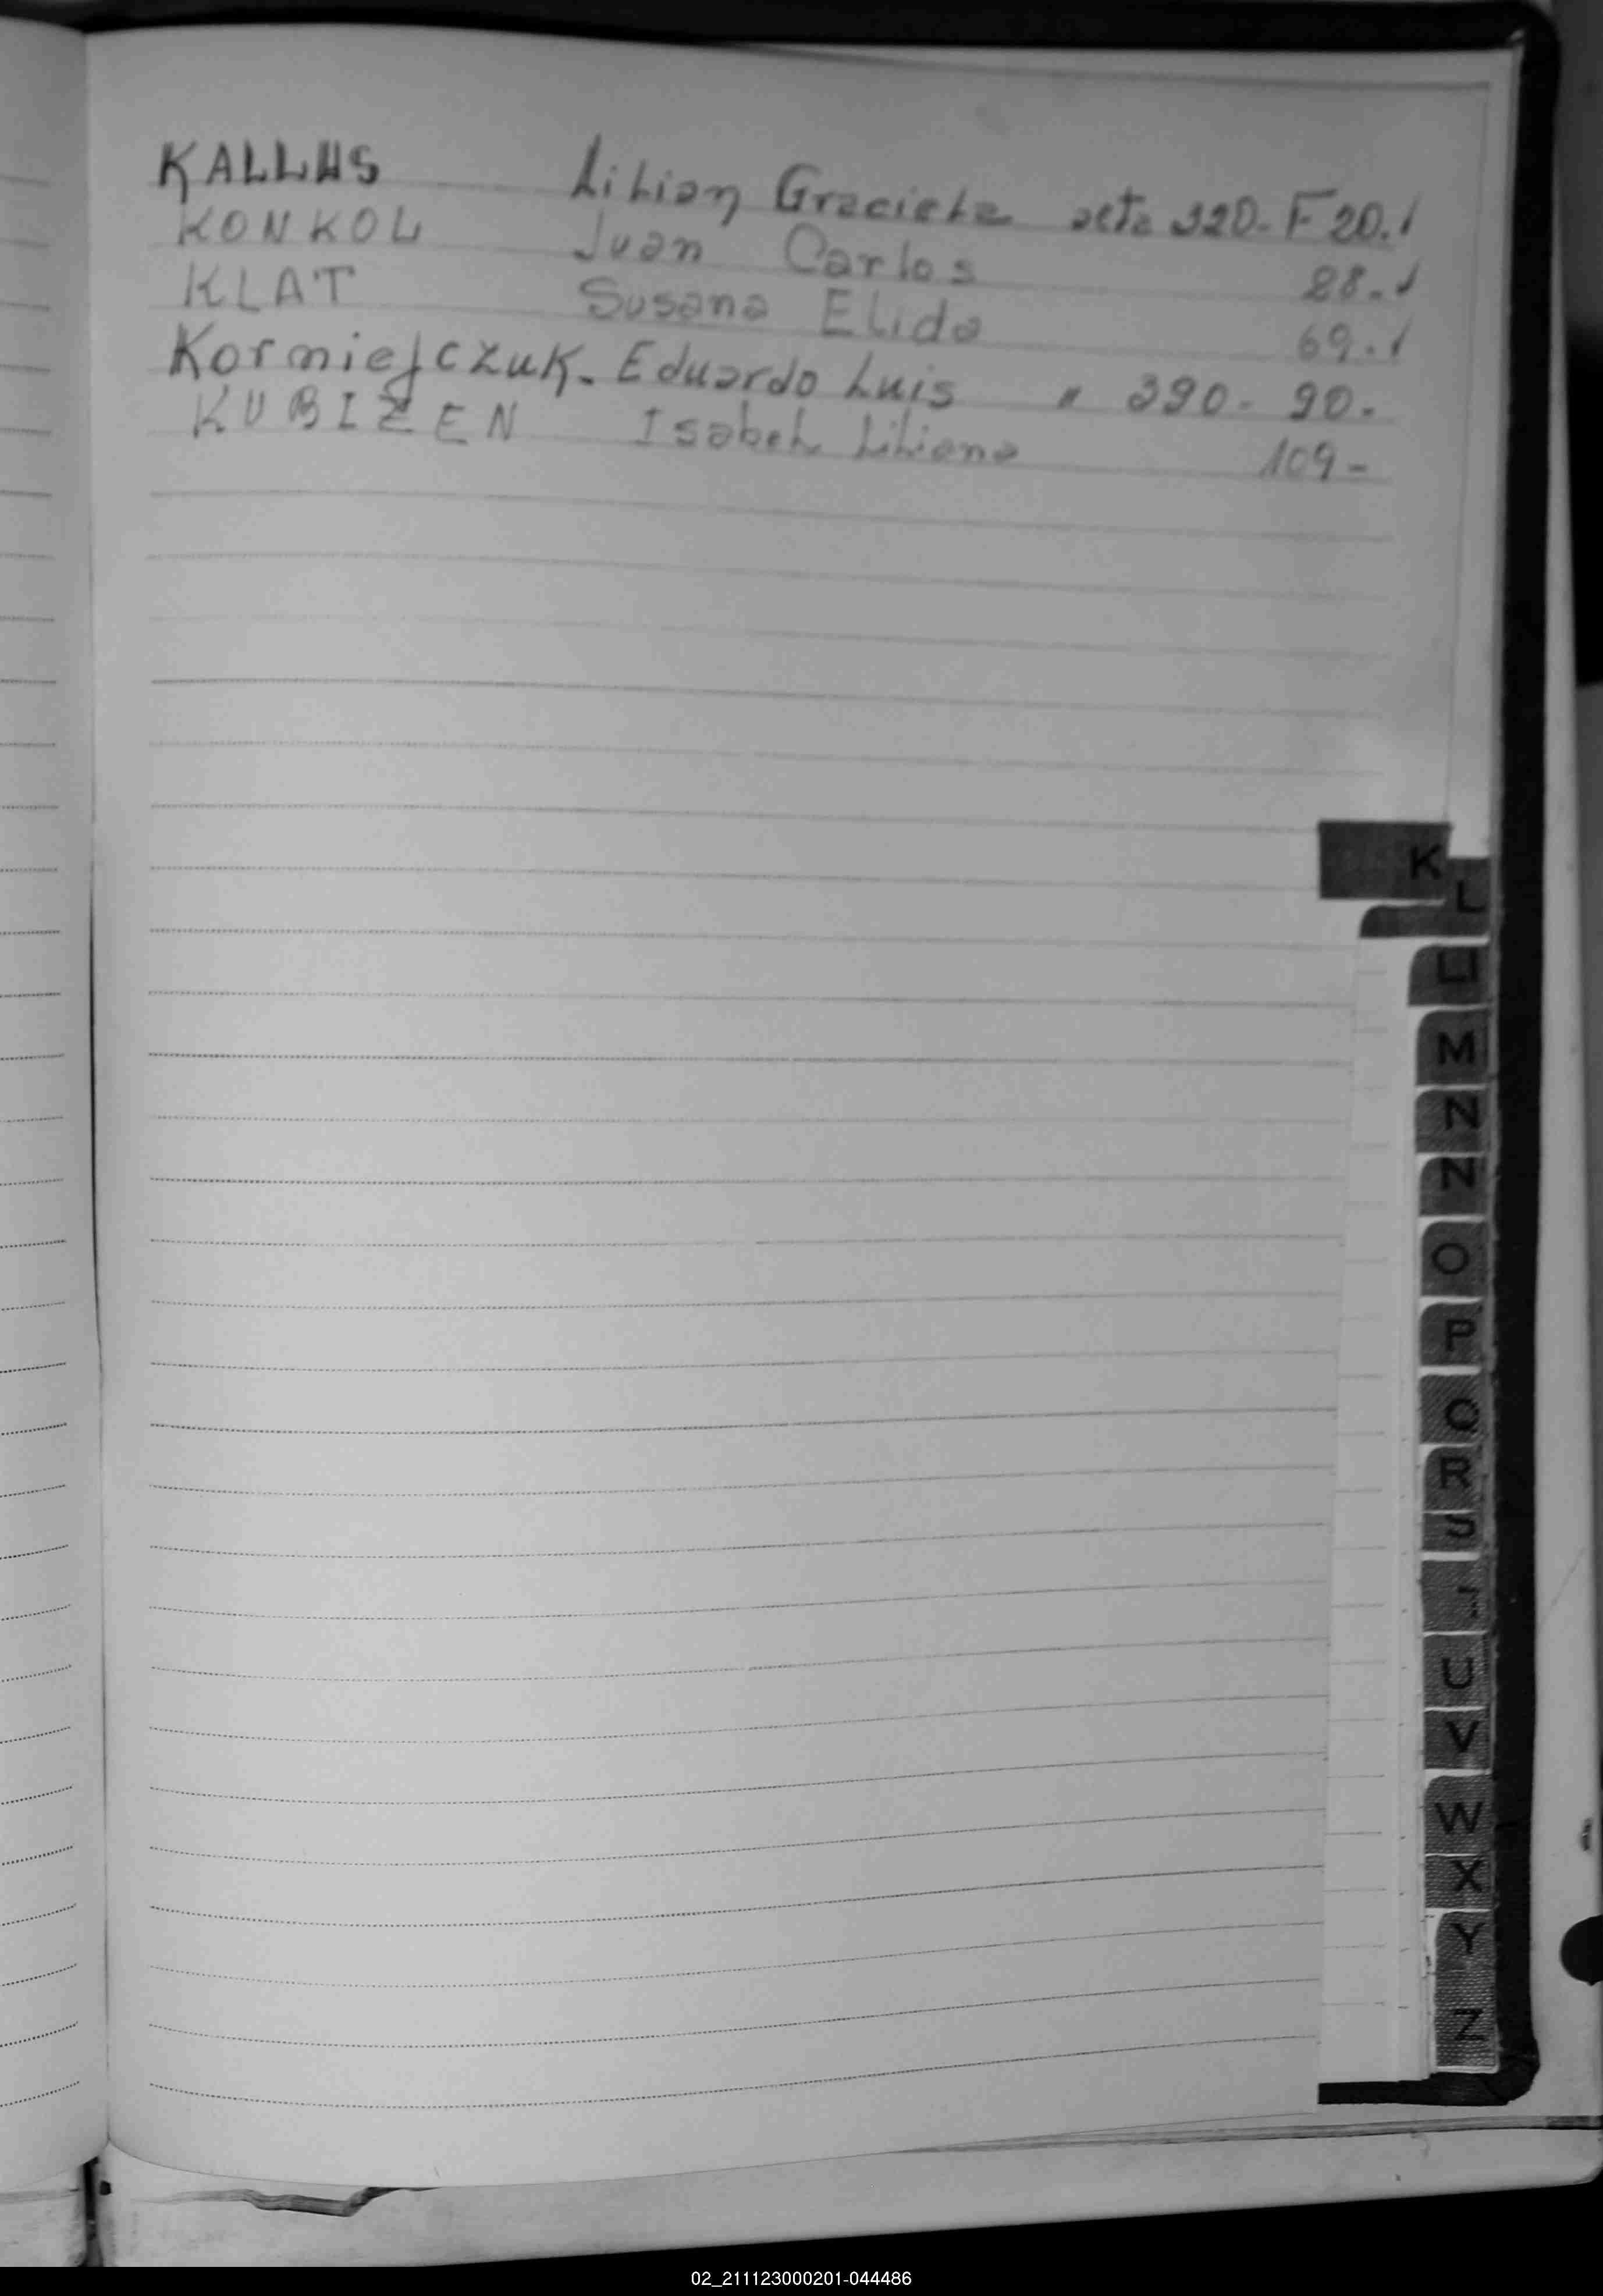 KALLUS Lilian Graciela acta 320- F 20.✓
KONKOL Juan Carlos 28.✓
KLAT Susana Elida 69.✓
Korniejczuk. Eduardo Luis " 390- 90.
KUBIZEN Isabel Liliana 109-
K
L
M
N
N
O
P
Q
R
S
U
V
W
X
Y
Z
02_211123000201-044486